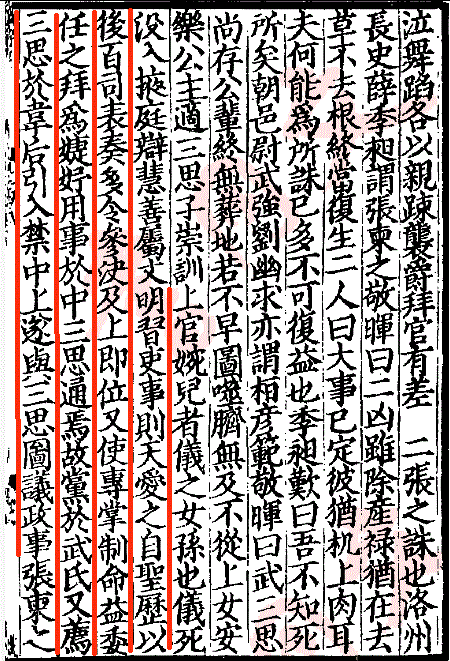 泣舞蹈各以親疎襲爵拜官有差　二張之誅也洛州
長史薛季昶謂張柬之敬暉曰二凶雖除產祿猶在去
草不去根終當復生二人曰大事已定彼猶机上肉耳
夫何能為所誅已多不可復益也季昶歎曰吾不知死
所矣朝邑尉武強劉幽求亦謂桓彥範敬暉曰武三思
尚存公輩終無葬地若不早圖噬臍無及不從上女安
樂公主適三思子崇訓上官婉兒者儀之女孫也儀死
沒入掖庭辯慧善屬文明習吏事則天愛之自聖曆以
後百司表奏多令參決及上即位又使專掌制命益委
任之拜為婕妤用事於中三思通焉故黨於武氏又薦
三思於韋后引入禁中上遂與三思圖議政事張柬之